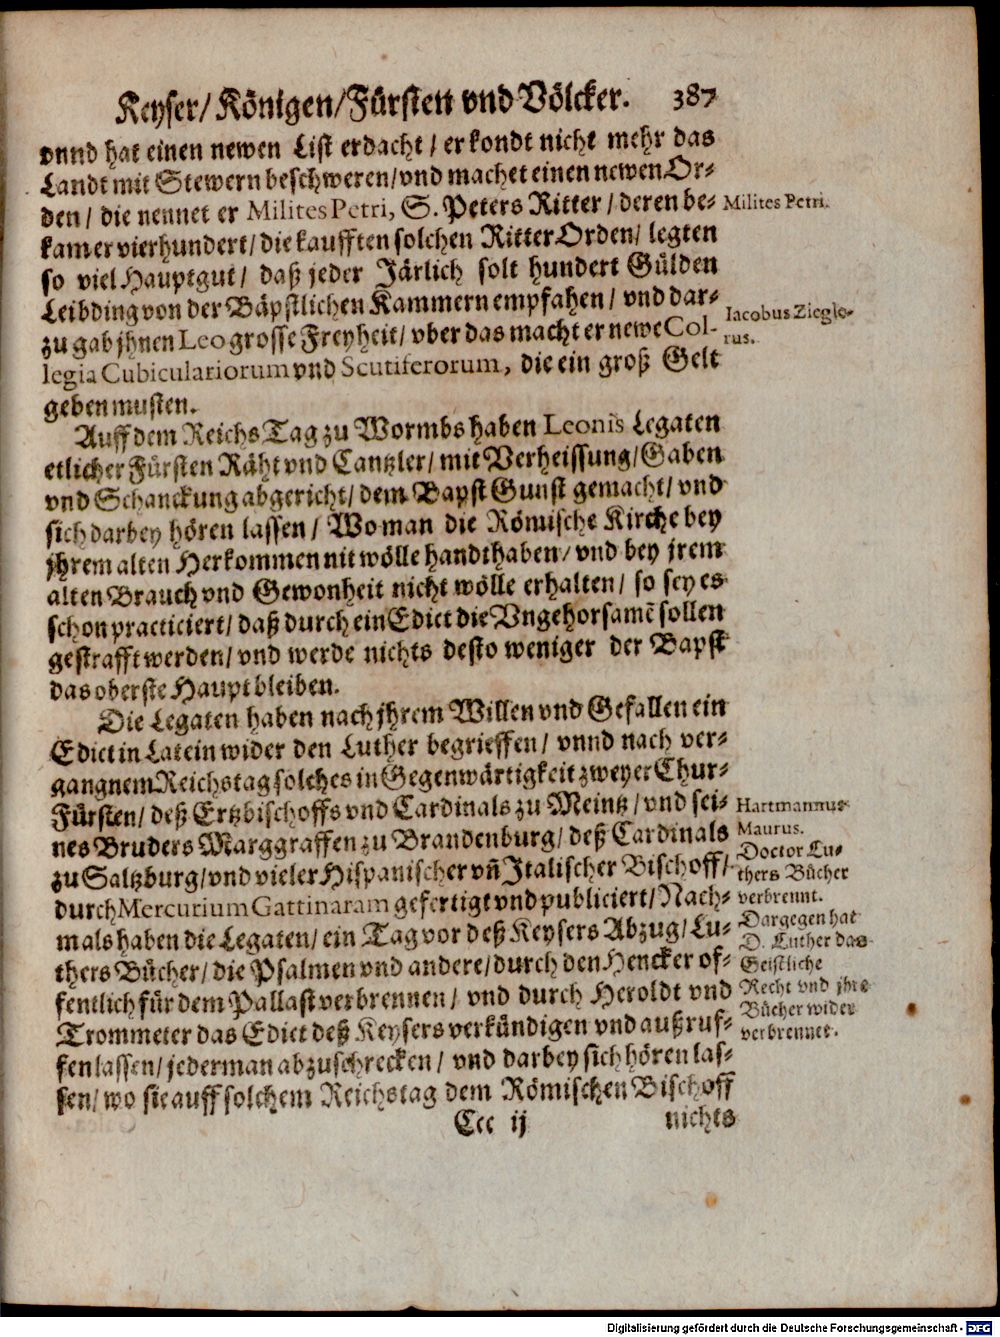 Keyser/ Königen/ Fürsten vnd Völcker. 387
vnnd hat einen newen List erdacht / er kondt nicht mehr das
Landt mit Stewern beschweren/ vnd machet einen newen Or-
den / die nennet er Milites Petri, S. Peters Ritter / deren be-
kam er vierhundert/ die kaufften solchen Ritter Orden/ legten
so viel Hauptgut / daß jeder Järlich solt hundert Gülden
Leibding von der Bäpstlichen Kammern empfahen / vnd dar-
zu gab jhnen Leo grosse Freyheit/ vber das macht er newe Col-
legia Cubiculariorum vnd Scutiferorum, die ein groß Gelt
geben musten.
Milites Petri.
Iacobus Zieglo-
rus.
Auff dem Reichs Tag zu Wormbs haben Leonis Legaten
etlicher Fürsten Räht vnd Cantzler/ mit Verheissung/ Gaben
vnd Schanckung abgericht/ dem Bapst Gunst gemacht/ vnd
sich darbey hören lassen / Wo man die Römische Kirche bey
jhrem alten Herkommen nit wölle handthaben/ vnd bey jrem
alten Brauch vnd Gewonheit nicht wölle erhalten/ so sey es
schon practiciert/ daß durch ein Edict die Vngehorsamē sollen
gestrafft werden/ vnd werde nichts desto weniger der Bapst
das oberste Haupt bleiben.
Die Legaten haben nach jhrem Willen vnd Gefallen ein
Edict in Latein wider den Luther begrieffen / vnnd nach ver-
gangnem Reichstag solches in Gegenwärtigkeit zweyer Chur-
Fürsten/ deß Ertzbischoffs vnd Cardinals zu Meintz/ vnd sei-
nes Bruders Marggraffen zu Brandenburg/ deß Cardinals
zu Saltzburg/ vnd vieler Hispanischer vn̄ Italischer Bischoff/
durch Mercurium Gattinaram gefertigt vnd publiciert/ Nach-
mals haben die Legaten/ ein Tag vor deß Keysers Abzug/ Lu-
thers Bücher/ die Psalmen vnd andere/ durch den Hencker of-
fentlich für dem Pallast verbrennen/ vnd durch Heroldt vnd
Trommeter das Edict deß Keysers verkündigen vnd außruf-
fen lassen/ jederman abzuschrecken/ vnd darbey sich hören las-
sen/ wo sie auff solchem Reichstag dem Römischen Bischoff
Hartmannus
Maurus.
Doctor Lu-
thers Bücher
verbrennt.
Dargegen hat
D. Luther das
Geistliche
Recht vnd jhre
Bücher wider
verbrennet.
Ccc ij nichts
Digitalisierung gefördert durch die Deutsche Forschungsgemeinschaft - DFG